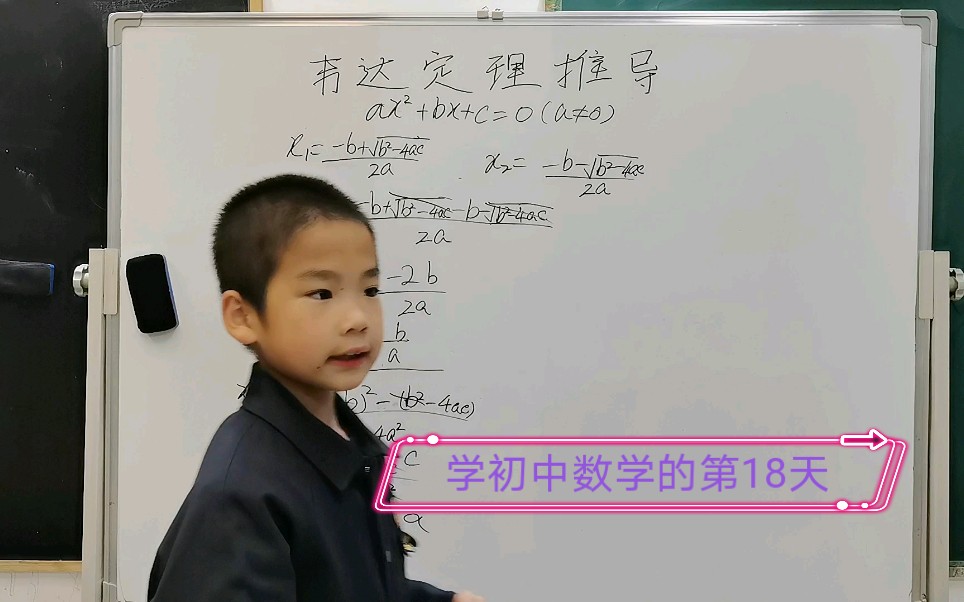 韦达定理推导
ax²+bx+c=0(a≠0)
x₁=(-b+√(b²-4ac))/2a x₂=(-b-√(b²-4ac))/2a
-b+√(b²-4ac)-b-√(b²-4ac)
2a
-2b
2a
b
a
b)²-(b²-4ac)
4a²
c
a
学初中数学的第18天